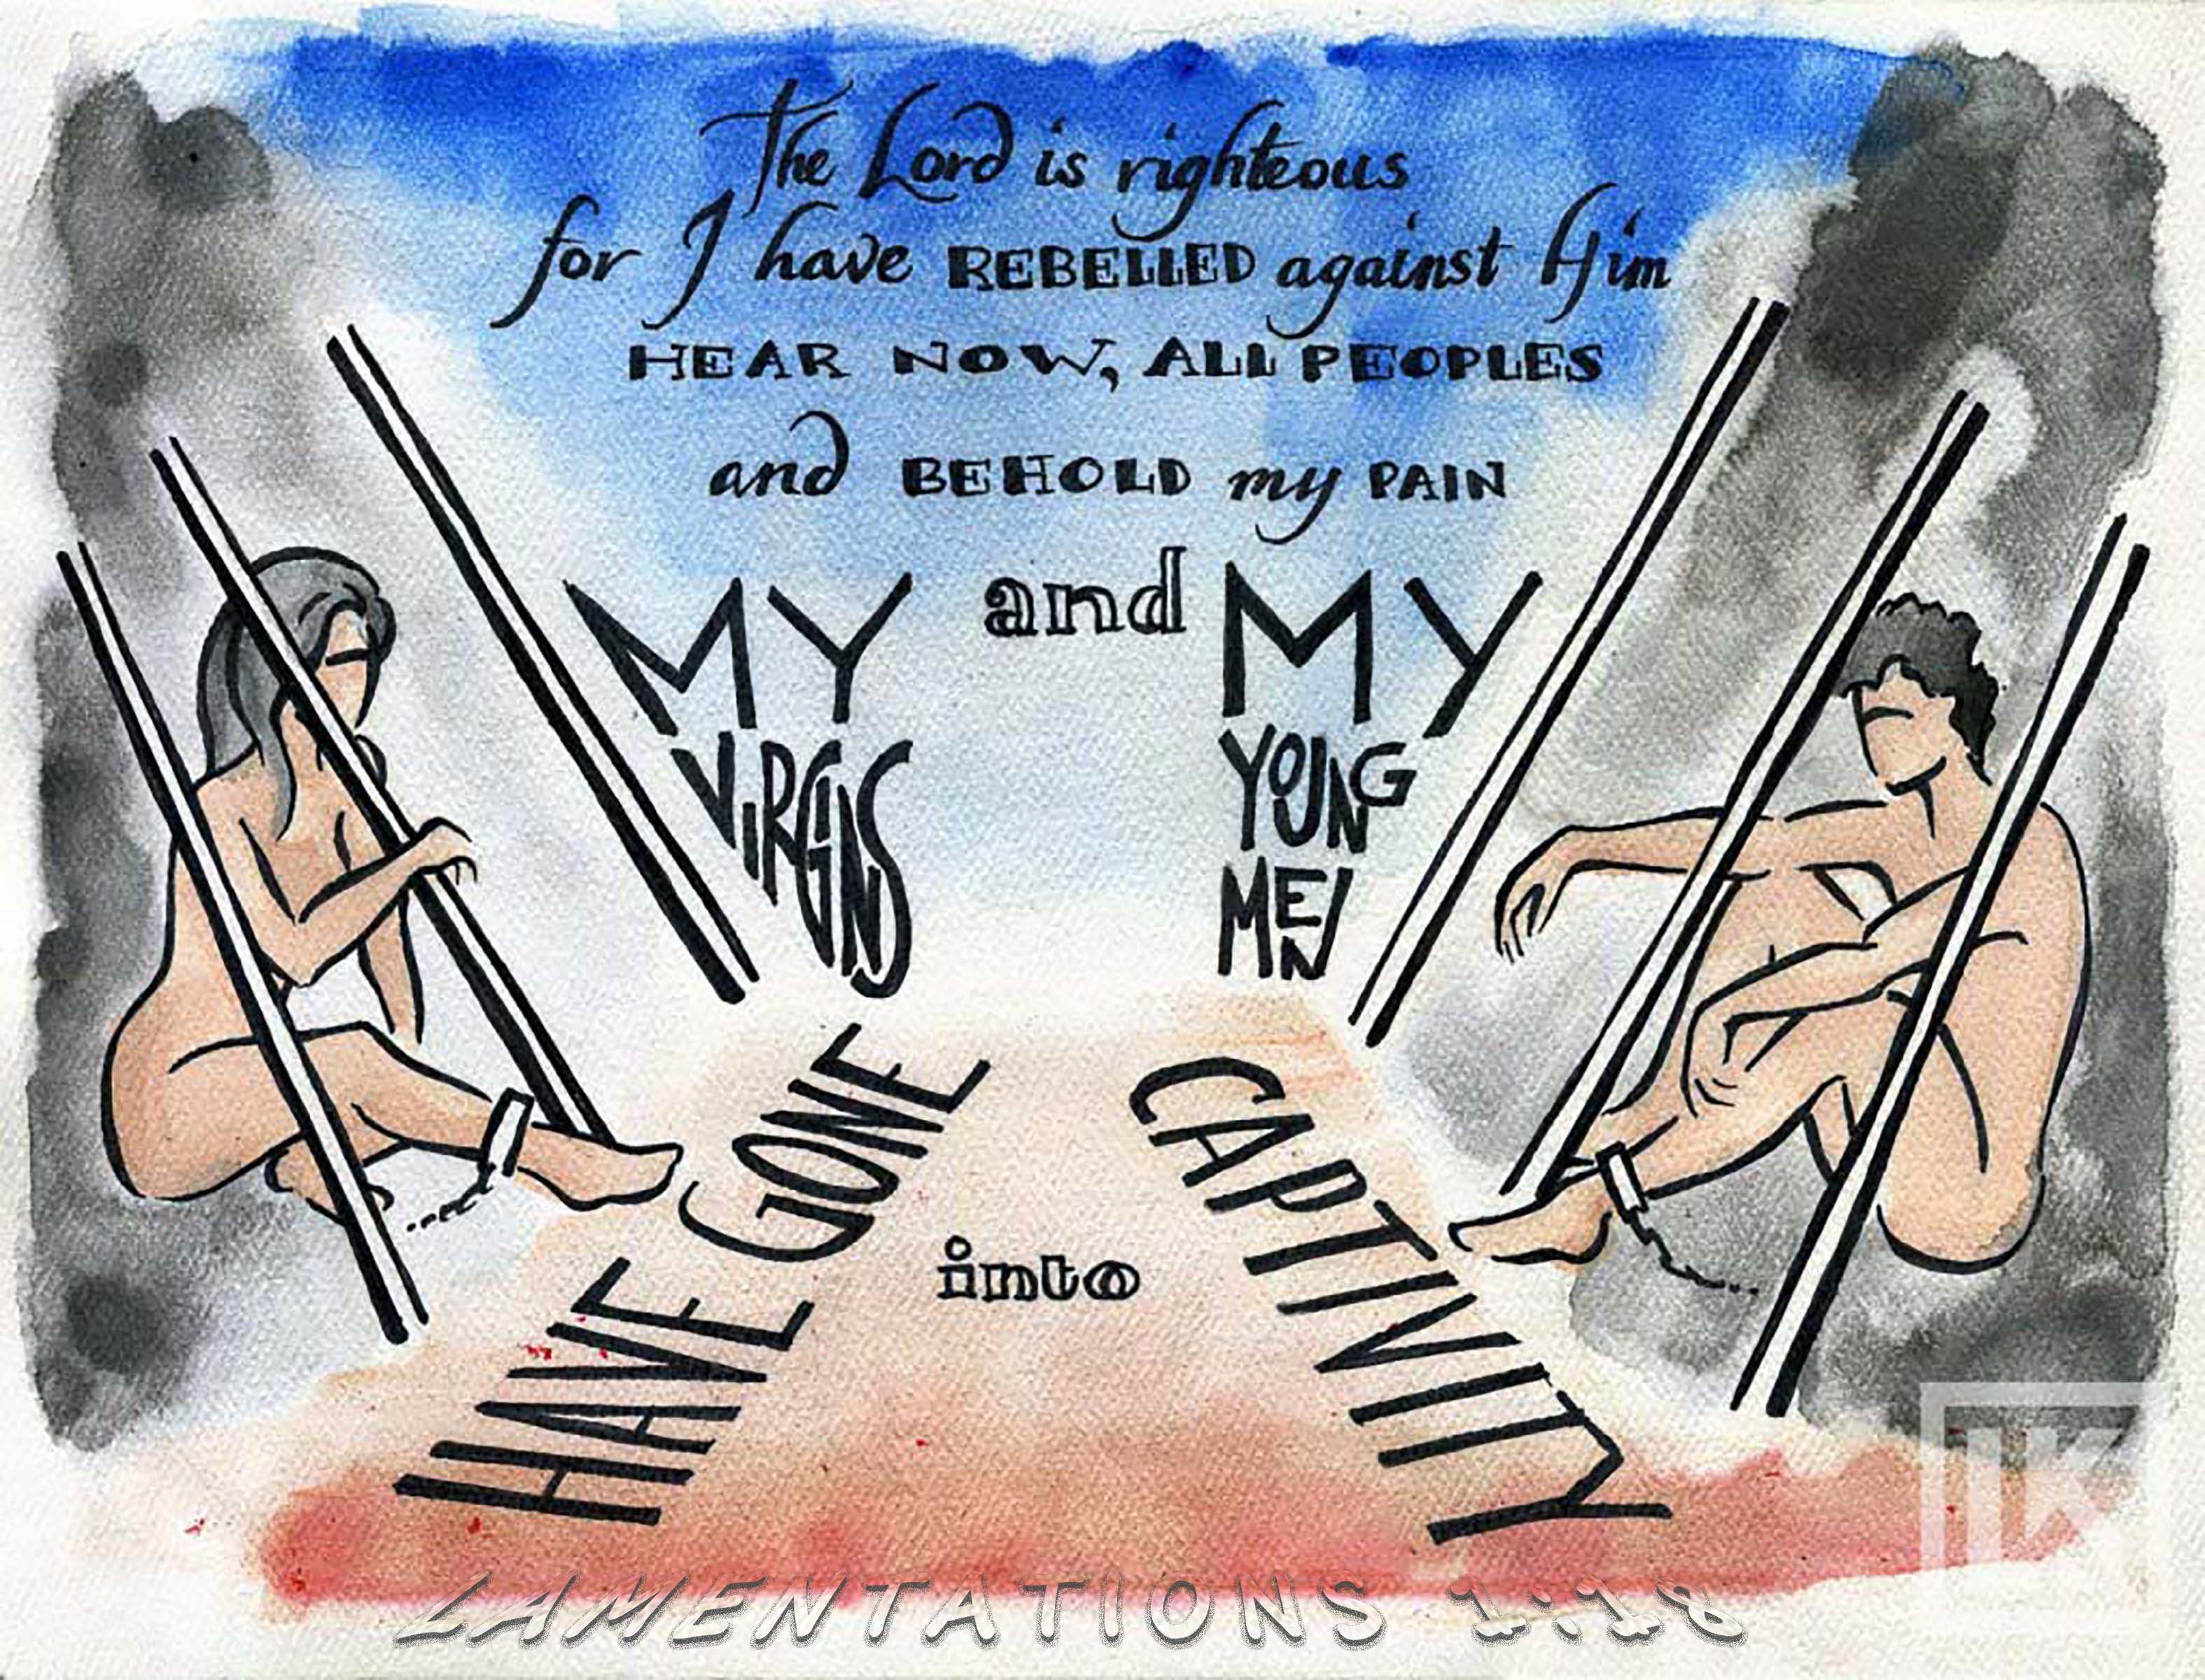 The Lord is righteous
for I have REBELLED against Him
HEAR NOW, ALL PEOPLES
and BEHOLD my PAIN
MY and MY
VIRGINS YOUNG
MEN
HAVE GONE into CAPTIVITY
LAMENTATIONS 1:18